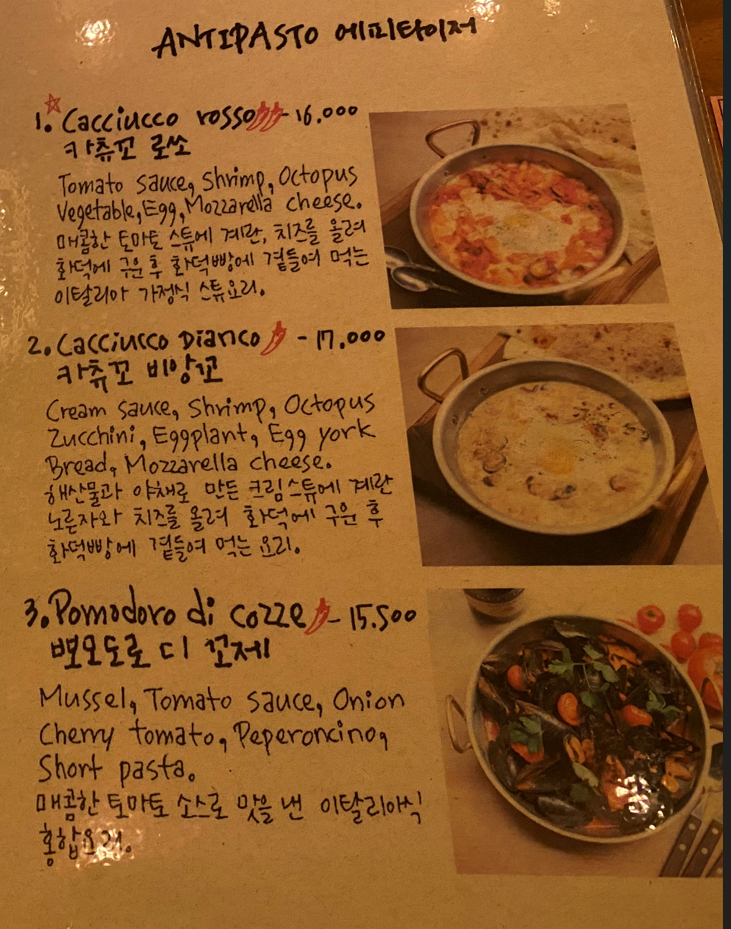 ANTIPASTO 에피타이저
1. Cacciucco rosso - 16.000
카츄꼬 로쏘
Tomato sauce, Shrimp, Octopus
Vegetable, Egg, Mozzarella cheese.
매콤한 토마토 스튜에 계란, 치즈를 올려
화덕에 구운 후 화덕빵에 곁들여 먹는
이탈리아 가정식 스튜요리.
2. Cacciucco Bianco - 17.000
카츄꼬 비앙꼬
Cream sauce, Shrimp, Octopus
Zucchini, Eggplant, Egg york
Bread, Mozzarella cheese.
해산물과 야채로 만든 크림스튜에 계란
노른자와 치즈를 올려 화덕에 구운 후
화덕빵에 곁들여 먹는 요리.
3. Pomodoro di cozze - 15.500
뽀모도로 디 꼬제
Mussel, Tomato sauce, Onion
Cherry tomato, Peperoncino,
Short pasta.
매콤한 토마토 소스로 맛을 낸 이탈리아식
홍합요리.